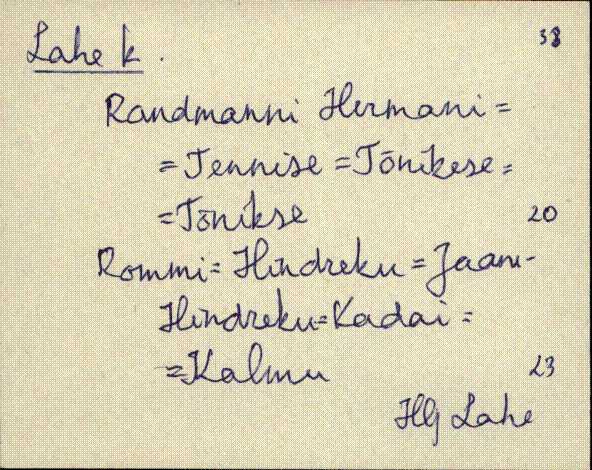 Lahe k.
38
Randmanni Hermani =
= Tennise = Tõnikese =
= Tõnikse 20
Rommi = Hindreku = Jaani-
Hindreku = Kadai =
= Kalmu 23
Lahe